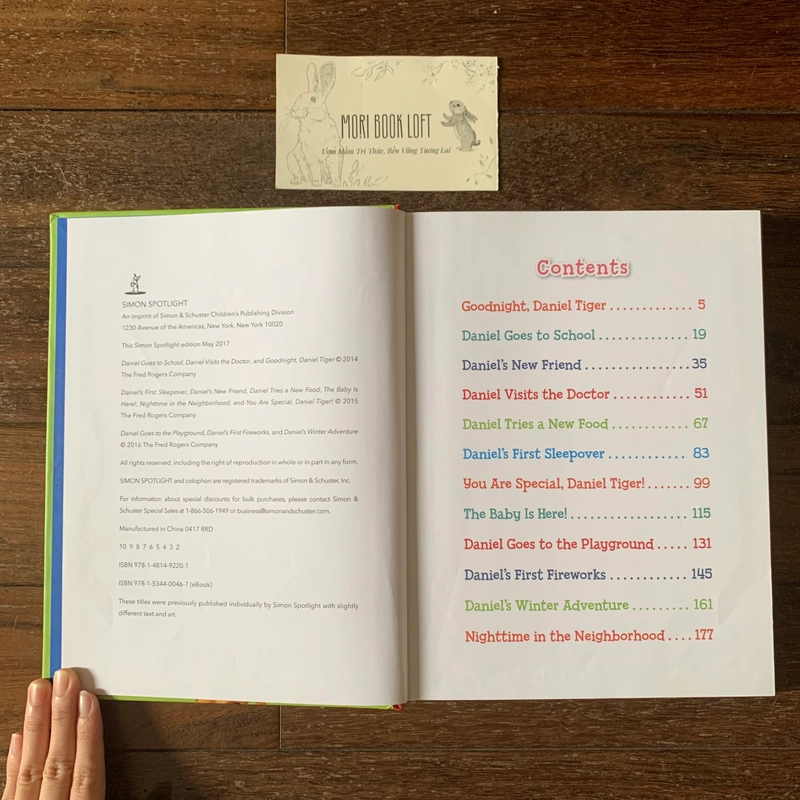 MORI BOOK LOFT
Ươm Mầm Tri Thức, Bền Vững Tương Lai
SIMON SPOTLIGHT
An imprint of Simon & Schuster Children's Publishing Division
1230 Avenue of the Americas, New York, New York 10020
This Simon Spotlight edition May 2017
Daniel Goes to School, Daniel Visits the Doctor, and Goodnight, Daniel Tiger © 2014
The Fred Rogers Company
Daniel's First Sleepover, Daniel's New Friend, Daniel Tries a New Food, The Baby Is
Here!, Nighttime in the Neighborhood, and You Are Special, Daniel Tiger! © 2015
The Fred Rogers Company
Daniel Goes to the Playground, Daniel's First Fireworks, and Daniel's Winter Adventure
© 2016 The Fred Rogers Company
All rights reserved, including the right of reproduction in whole or in part in any form.
SIMON SPOTLIGHT and colophon are registered trademarks of Simon & Schuster, Inc.
For information about special discounts for bulk purchases, please contact Simon &
Schuster Special Sales at 1-866-506-1949 or business@simonandschuster.com.
Manufactured in China 0417 RRD
10 9 8 7 6 5 4 3 2
ISBN 978-1-4814-9220-1
ISBN 978-1-5344-0046-7 (eBook)
These titles were previously published individually by Simon Spotlight with slightly
different text and art.
Contents
Goodnight, Daniel Tiger ............. 5
Daniel Goes to School .............. 19
Daniel's New Friend ................ 35
Daniel Visits the Doctor ............ 51
Daniel Tries a New Food ............ 67
Daniel's First Sleepover ............ 83
You Are Special, Daniel Tiger! ....... 99
The Baby Is Here! .................. 115
Daniel Goes to the Playground ..... 131
Daniel's First Fireworks ............ 145
Daniel's Winter Adventure ......... 161
Nighttime in the Neighborhood .... 177